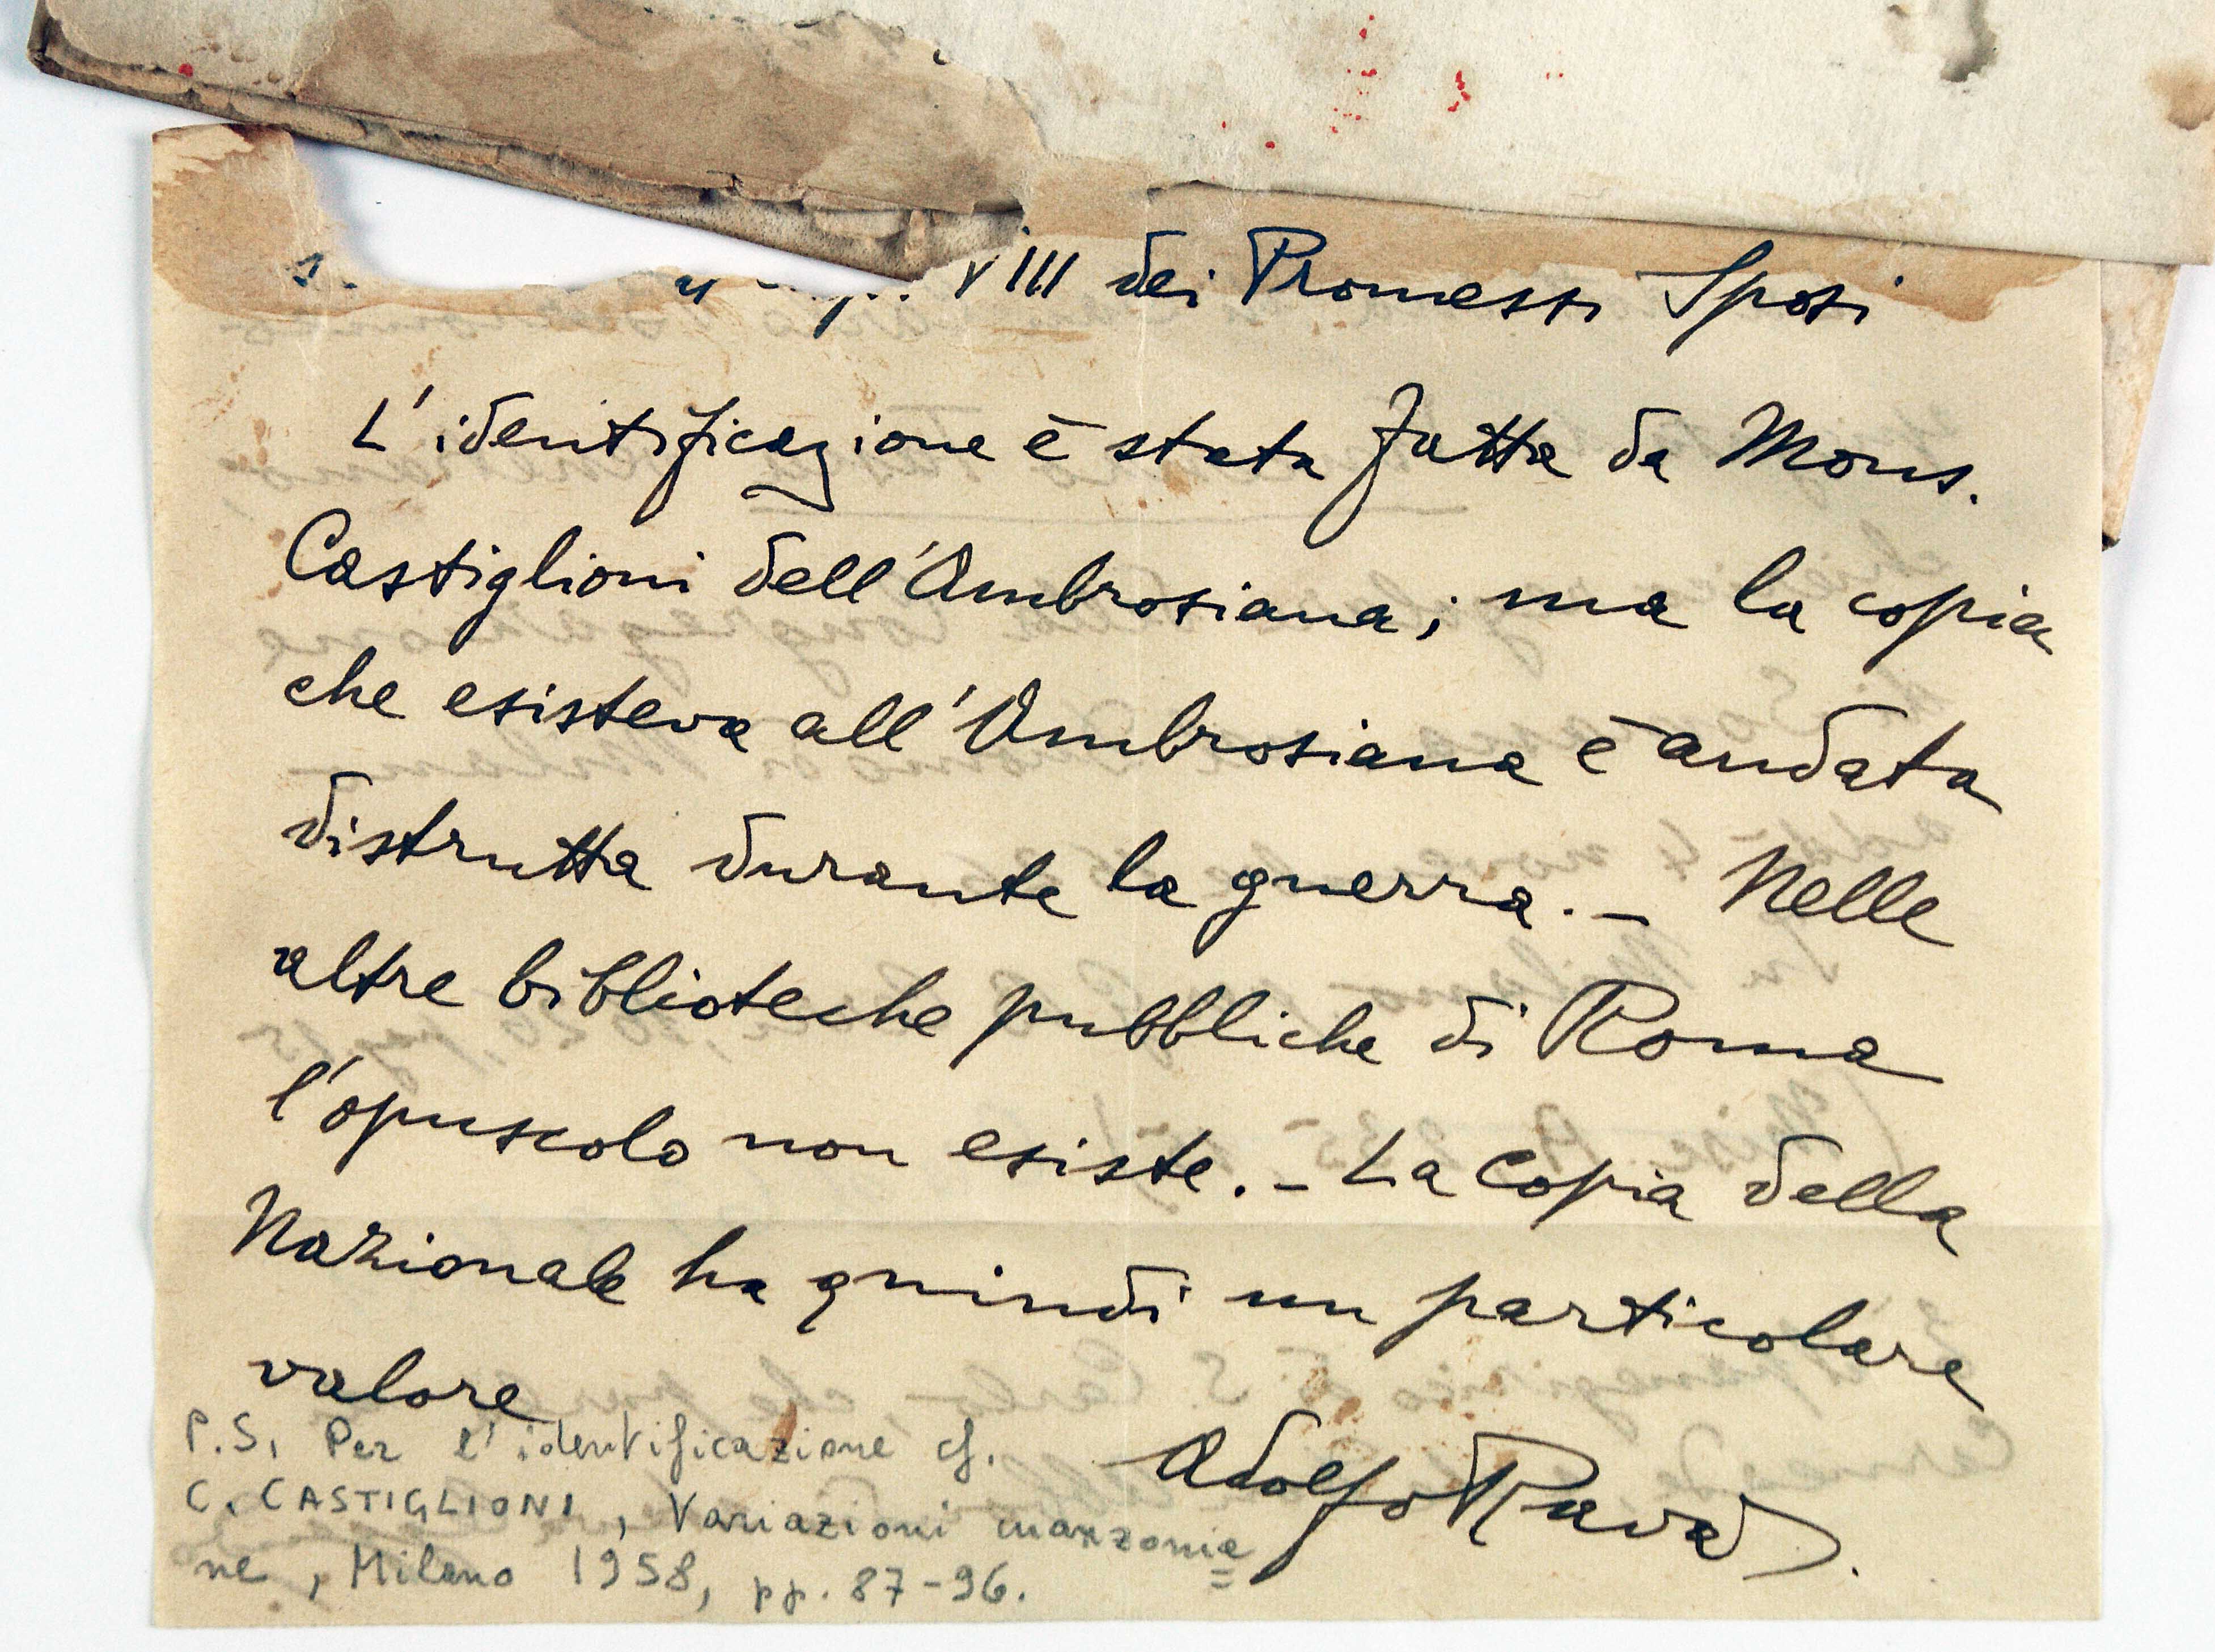 VIII dei Promessi Sposi
L'identificazione è stata fatta da Mons.
Castiglioni dell'Ambrosiana; ma la copia
che esisteva all'Ambrosiana è andata
distrutta durante la guerra.– Nelle
altre biblioteche pubbliche di Roma
l'opuscolo non esiste.– La Copia della
Nazionale ha quindi un particolare
valore
Adolfo Ravà
P.S. Per l'identificazione cf.
C. CASTIGLIONI, Variazioni manzonia=
ne, Milano 1958, pp. 87-96.